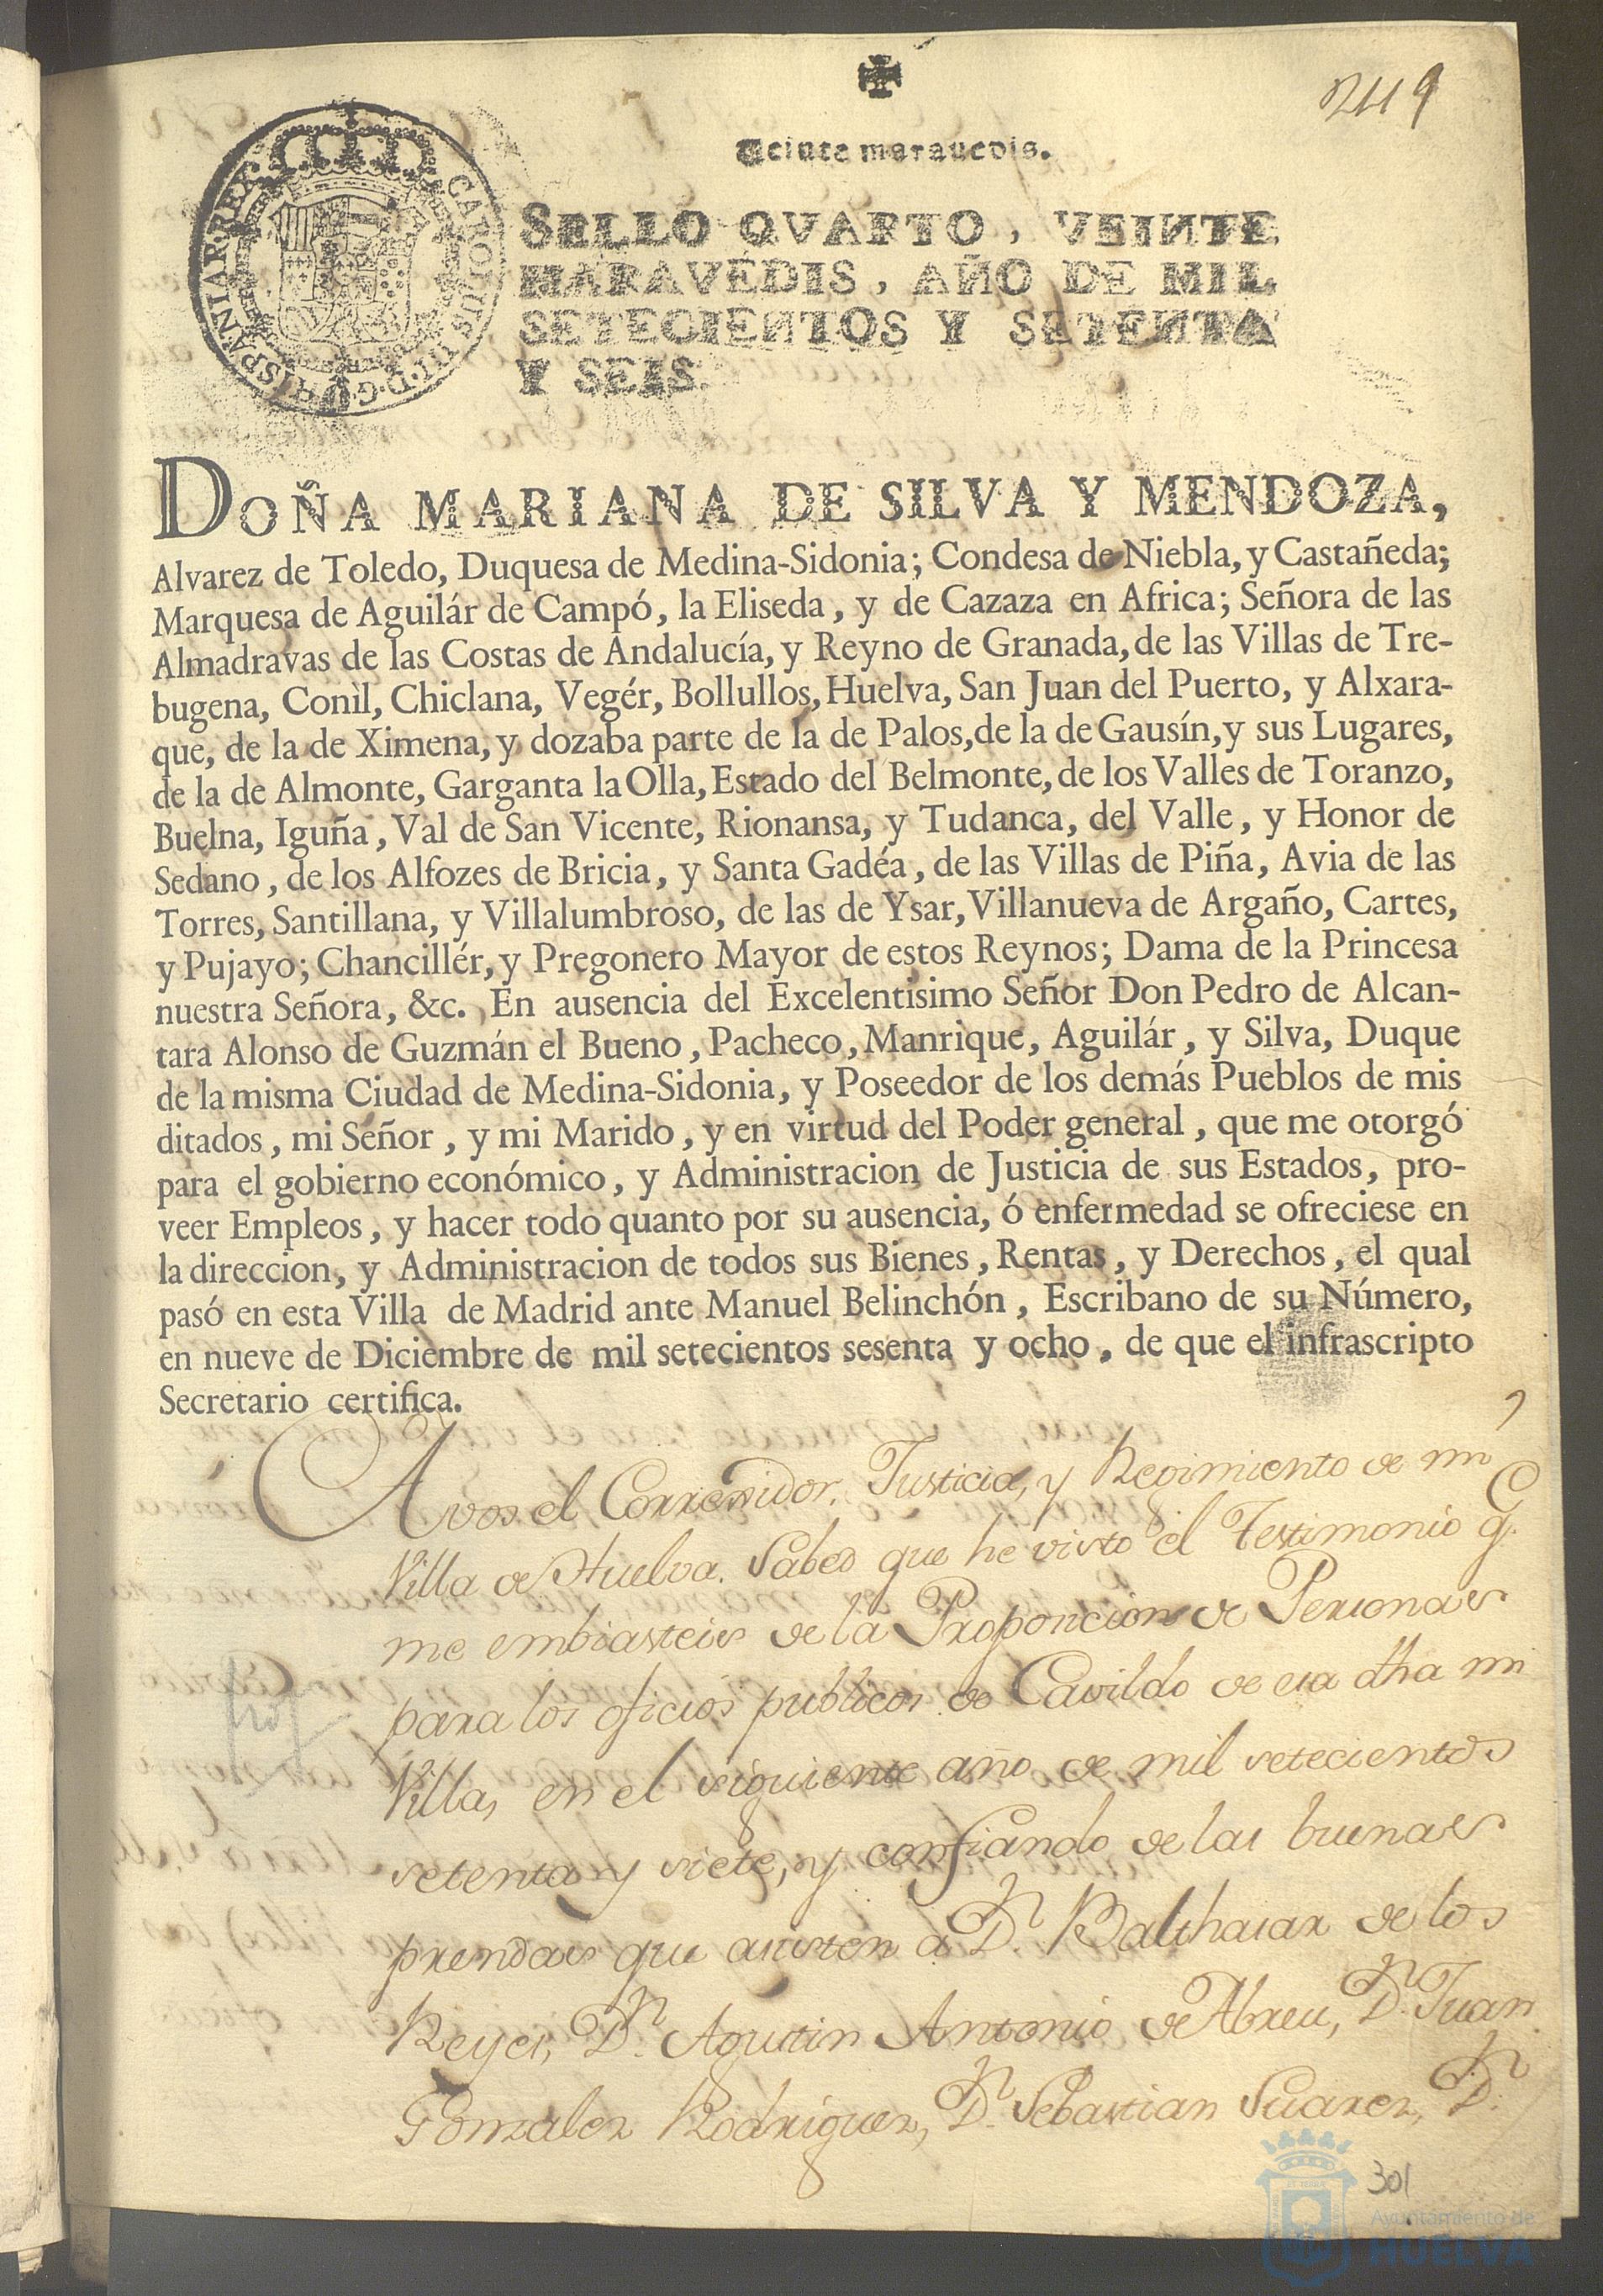 2119
Veinte maravedis.
SELLO QVARTO, VEINTE
MARAVEDIS, AÑO DE MIL
SETECIENTOS Y SETENTA
Y SEIS.
CAROLUS III D.G. HISPANIAR. REX
DOÑA MARIANA DE SILVA Y MENDOZA,
Alvarez de Toledo, Duquesa de Medina-Sidonia; Condesa de Niebla, y Castañeda;
Marquesa de Aguilár de Campó, la Eliseda, y de Cazaza en Africa; Señora de las
Almadravas de las Costas de Andalucía, y Reyno de Granada, de las Villas de Tre-
bugena, Conìl, Chiclana, Vegér, Bollullos, Huelva, San Juan del Puerto, y Alxara-
que, de la de Ximena, y dozaba parte de la de Palos, de la de Gausín, y sus Lugares,
de la de Almonte, Garganta la Olla, Estado del Belmonte, de los Valles de Toranzo,
Buelna, Iguña, Val de San Vicente, Rionansa, y Tudanca, del Valle, y Honor de
Sedano, de los Alfozes de Bricia, y Santa Gadéa, de las Villas de Piña, Avia de las
Torres, Santillana, y Villalumbroso, de las de Ysar, Villanueva de Argaño, Cartes,
y Pujayo; Chancillér, y Pregonero Mayor de estos Reynos; Dama de la Princesa
nuestra Señora, &c. En ausencia del Excelentisimo Señor Don Pedro de Alcan-
tara Alonso de Guzmán el Bueno, Pacheco, Manrique, Aguilár, y Silva, Duque
de la misma Ciudad de Medina-Sidonia, y Poseedor de los demás Pueblos de mis
ditados, mi Señor, y mi Marido, y en virtud del Poder general, que me otorgó
para el gobierno económico, y Administracion de Justicia de sus Estados, pro-
veer Empleos, y hacer todo quanto por su ausencia, ó enfermedad se ofreciese en
la direccion, y Administracion de todos sus Bienes, Rentas, y Derechos, el qual
pasó en esta Villa de Madrid ante Manuel Belinchón, Escribano de su Número,
en nueve de Diciembre de mil setecientos sesenta y ocho, de que el infrascripto
Secretario certifica.
A vos el Corregidor, Justicia, y Regimiento de mi
Villa de Huelva. Sabed que he visto el Testimonio q.e
me embiasteis de la Proporcion de Personas
para los oficios publicos de Cavildo de esa dha mi
Villa, en el siguiente año de mil setecientos
setenta y siete, y confiando de las buenas
prendas que asisten a D.n Balthasar de los
Reyes, D.n Agustin Antonio de Abreu, D.n Juan
Gonzalez Rodriguez, D.n Sebastian Suarez, D.n
301
Ayuntamiento de
HUELVA